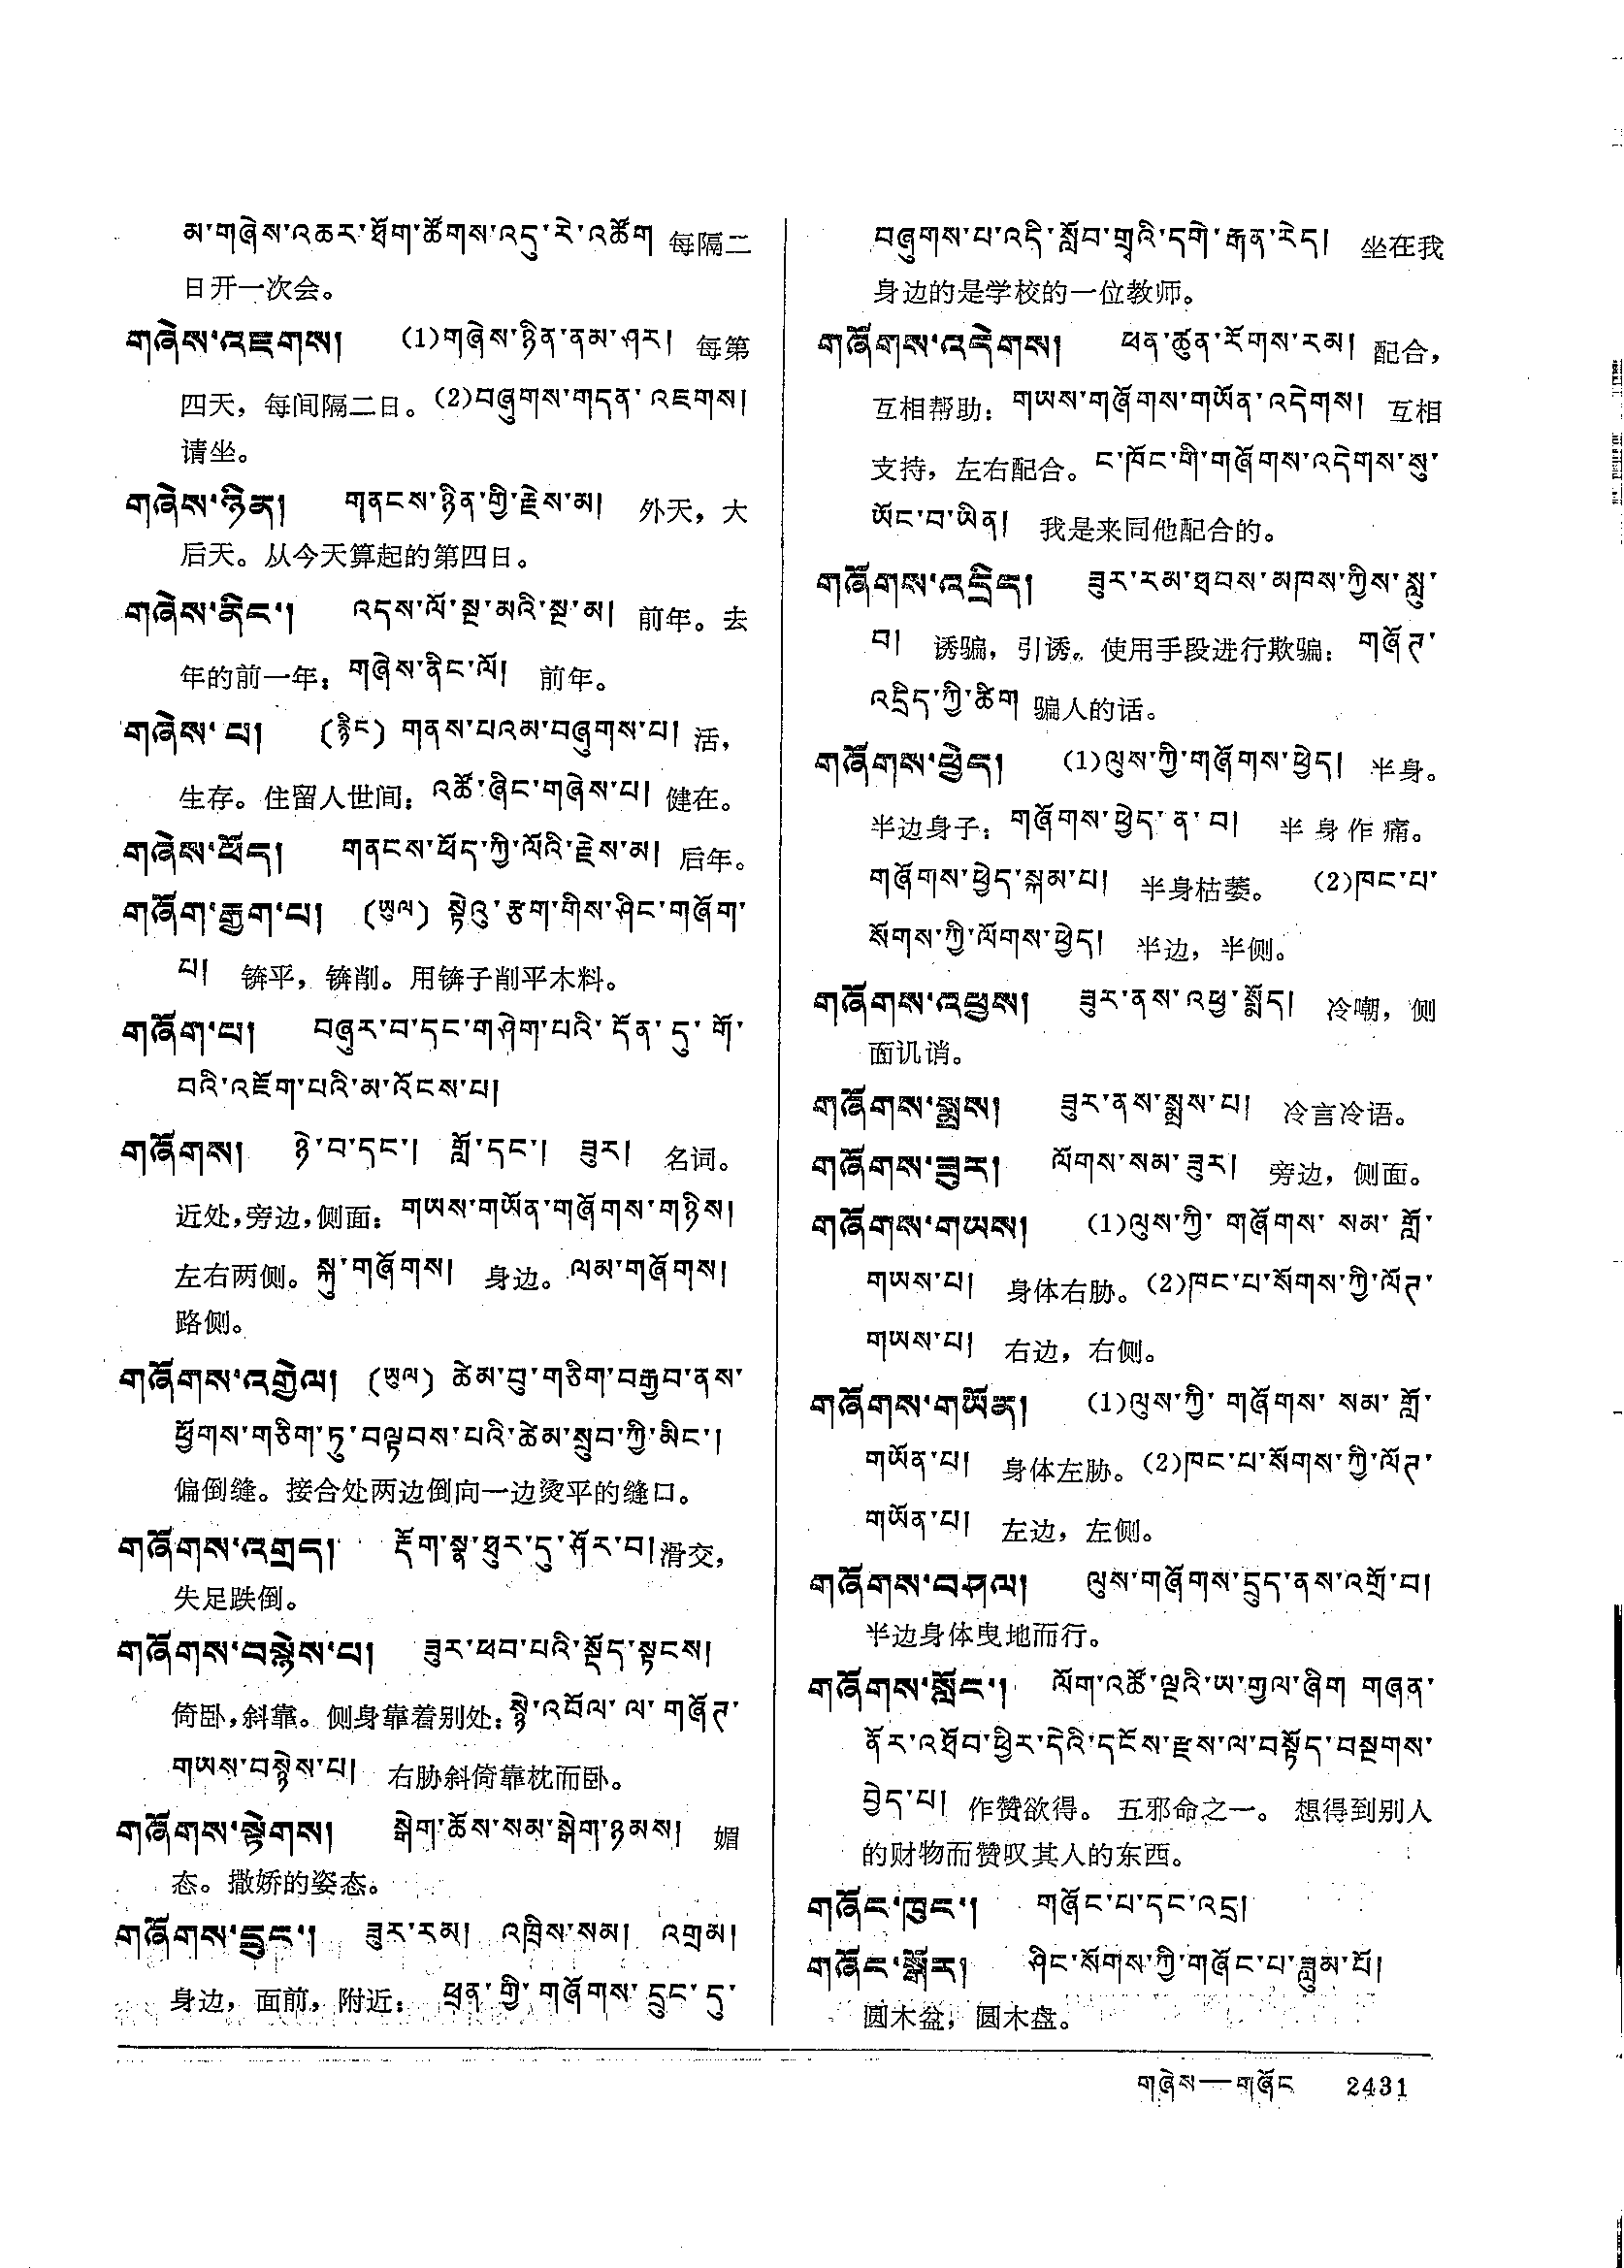 མ་གཞེས་འཆར་ཐོག་ཚོགས་འདུ་རེ་འཚོག 每隔二
日开一次会。
གཞེས་འཇགས། (1)གཞེས་ཉིན་ནམ་ཤར། 每第
四天，每间隔二日。(2)བཞུགས་གདན་འཇགས།
请坐。
གཞེས་ཉིན། གནངས་ཉིན་གྱི་རྗེས་མ། 外天，大
后天。从今天算起的第四日。
གཞེས་ནིང་། འདས་ལོ་སྔ་མའི་སྔ་མ། 前年。去
年的前一年：གཞེས་ནིང་ལོ། 前年。
གཞེས་པ། (རྙིང) གནས་པའམ་བཞུགས་པ། 活，
生存。住留人世间：འཚོ་ཞིང་གཞེས་པ། 健在。
གཞེས་ཕོད། གནངས་ཕོད་ཀྱི་ལོའི་རྗེས་མ། 后年。
གཞོག་རྒྱག་པ། (ཡུལ) སྟེའུ་རྩག་གིས་ཤིང་གཞོག་
པ། 锛平，锛削。用锛子削平木料。
གཞོག་པ། བཞུར་བ་དང་གཤེག་པའི་དོན་དུ་གོ་
བའི་འཇོག་པའི་མ་འོངས་པ།
གཞོགས། ཉེ་བ་དང་། གློ་དང་། ཟུར། 名词。
近处，旁边，侧面：གཡས་གཡོན་གཞོགས་གཉིས།
左右两侧。སྐུ་གཞོགས། 身边。ལམ་གཞོགས།
路侧。
གཞོགས་འགྱེལ། (ཡུལ) ཚེམ་བུ་གཅིག་བརྒྱབ་ནས་
ཕྱོགས་གཅིག་ཏུ་བལྟབས་པའི་ཚེམ་སྲུབ་ཀྱི་མིང་།
偏倒缝。接合处两边倒向一边烫平的缝口。
གཞོགས་འགྲད། རྡོག་སྣ་ཐུར་དུ་ཤོར་བ། 滑交，
失足跌倒。
གཞོགས་བསྙེས་པ། ཟུར་ཕབ་པའི་སྡོད་སྟངས།
倚卧，斜靠。侧身靠着别处：སྙེ་འབོལ་ལ་གཞོཊ་
གཡས་བསྙེས་པ། 右胁斜倚靠枕而卧。
གཞོགས་སྟེགས། སྒེག་ཆོས་སམ་སྒེག་ཉམས། 媚
态。撒娇的姿态。
གཞོགས་དྲུང་། ཟུར་རམ། འཁྲིས་སམ། འགྲམ།
身边，面前，附近： ཕྲན་གྱི་གཞོགས་དྲུང་དུ་
བཞུགས་པ་འདི་སློབ་གྲྭའི་དགེ་རྒན་རེད། 坐在我
身边的是学校的一位教师。
གཞོགས་འདེགས། ཕན་ཚུན་རོགས་རམ། 配合，
互相帮助：གཡས་གཞོགས་གཡོན་འདེགས། 互相
支持，左右配合。ང་ཁོང་གི་གཞོགས་འདེགས་སུ་
ཡོང་བ་ཡིན། 我是来同他配合的。
གཞོགས་འདྲིད། ཟུར་རམ་ཐབས་མཁས་ཀྱིས་སླུ་
བ། 诱骗，引诱。使用手段进行欺骗：གཞོཊ་
འདྲིད་ཀྱི་ཚིག 骗人的话。
གཞོགས་ཕྱེད། (1)ལུས་ཀྱི་གཞོགས་ཕྱེད། 半身。
半边身子：གཞོགས་ཕྱེད་ན་བ། 半身作痛。
གཞོགས་ཕྱེད་སྐམ་པ། 半身枯萎。 (2)ཁང་པ་
སོགས་ཀྱི་ལོགས་ཕྱེད། 半边，半侧。
གཞོགས་འཕྱས། ཟུར་ནས་འཕྱ་སྨོད། 冷嘲，侧
面讥诮。
གཞོགས་སྨྲས། ཟུར་ནས་སྨྲས་པ། 冷言冷语。
གཞོགས་ཟུར། ལོགས་སམ་ཟུར། 旁边，侧面。
གཞོགས་གཡས། (1)ལུས་ཀྱི་གཞོགས་སམ་གློ་
གཡས་པ། 身体右胁。(2)ཁང་པ་སོགས་ཀྱི་ལོཊ་
གཡས་པ། 右边，右侧。
གཞོགས་གཡོན། (1)ལུས་ཀྱི་གཞོགས་སམ་གློ་
གཡོན་པ། 身体左胁。(2)ཁང་པ་སོགས་ཀྱི་ལོཊ་
གཡོན་པ། 左边，左侧。
གཞོགས་བཤལ། ལུས་གཞོགས་དྲུད་ནས་འགྲོ་བ།
半边身体曳地而行。
གཞོགས་སློང་། ལོག་འཚོ་ལྔའི་ཡ་གྱལ་ཞིག གཞན་
ནོར་འཐོབ་ཕྱིར་དེའི་དངོས་རྫས་ལ་བསྟོད་བསྔགས་
བྱེད་པ། 作赞欲得。五邪命之一。想得到别人
的财物而赞叹其人的东西。
གཞོང་ཁུང་། གཞོང་པ་དང་འདྲ།
གཞོང་སྒོར། ཤིང་སོགས་ཀྱི་གཞོང་པ་ཟླུམ་པོ།
圆木盆，圆木盘。
གཞེས—གཞོང 2431